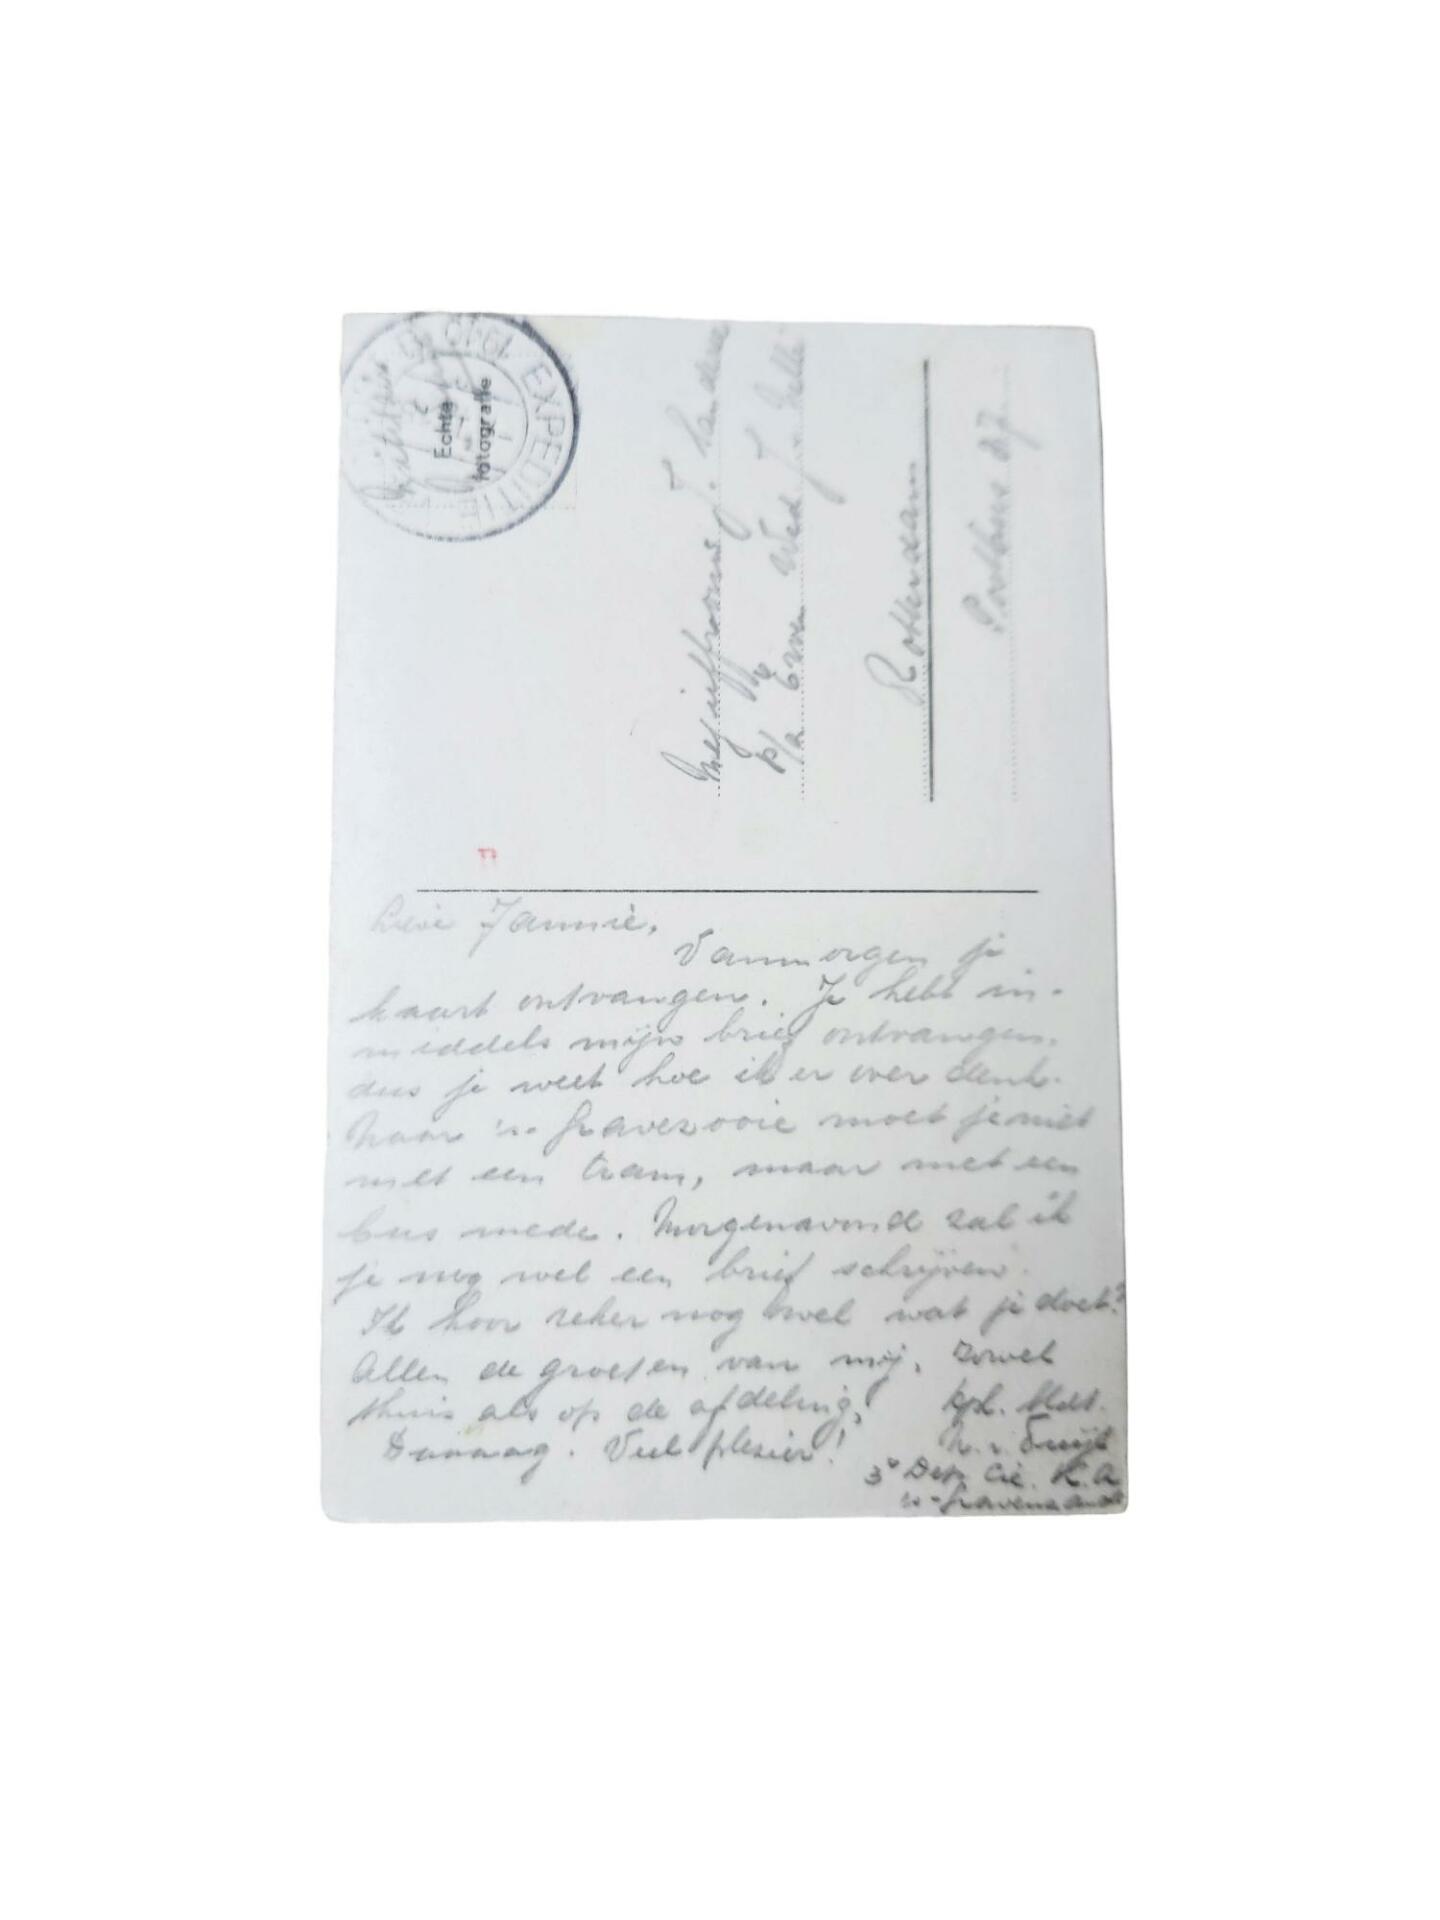 EXPEDITIE
Echte
fotografie
Mejuffrouw J.
p/a Erven Wed. J. v. Nelle
Rotterdam
Postbus 27
Lieve Jannie,
Vanmorgen je
kaart ontvangen. Je hebt in-
middels mijn brief ontvangen,
dus je weet hoe ik er over denk.
Naar 's-Gravezooie moet je niet
met een tram, maar met een
bus mede. Morgenavond zal ik
je nog wel een brief schrijven.
Ik hoor zeker nog wel wat je doet?
Allen de groeten van mij, zowel
thuis als op de afdeling,
Daaaag. Veel plezier!
kpl.
3e Dep. Cie. K.A.
's-Gravenzande